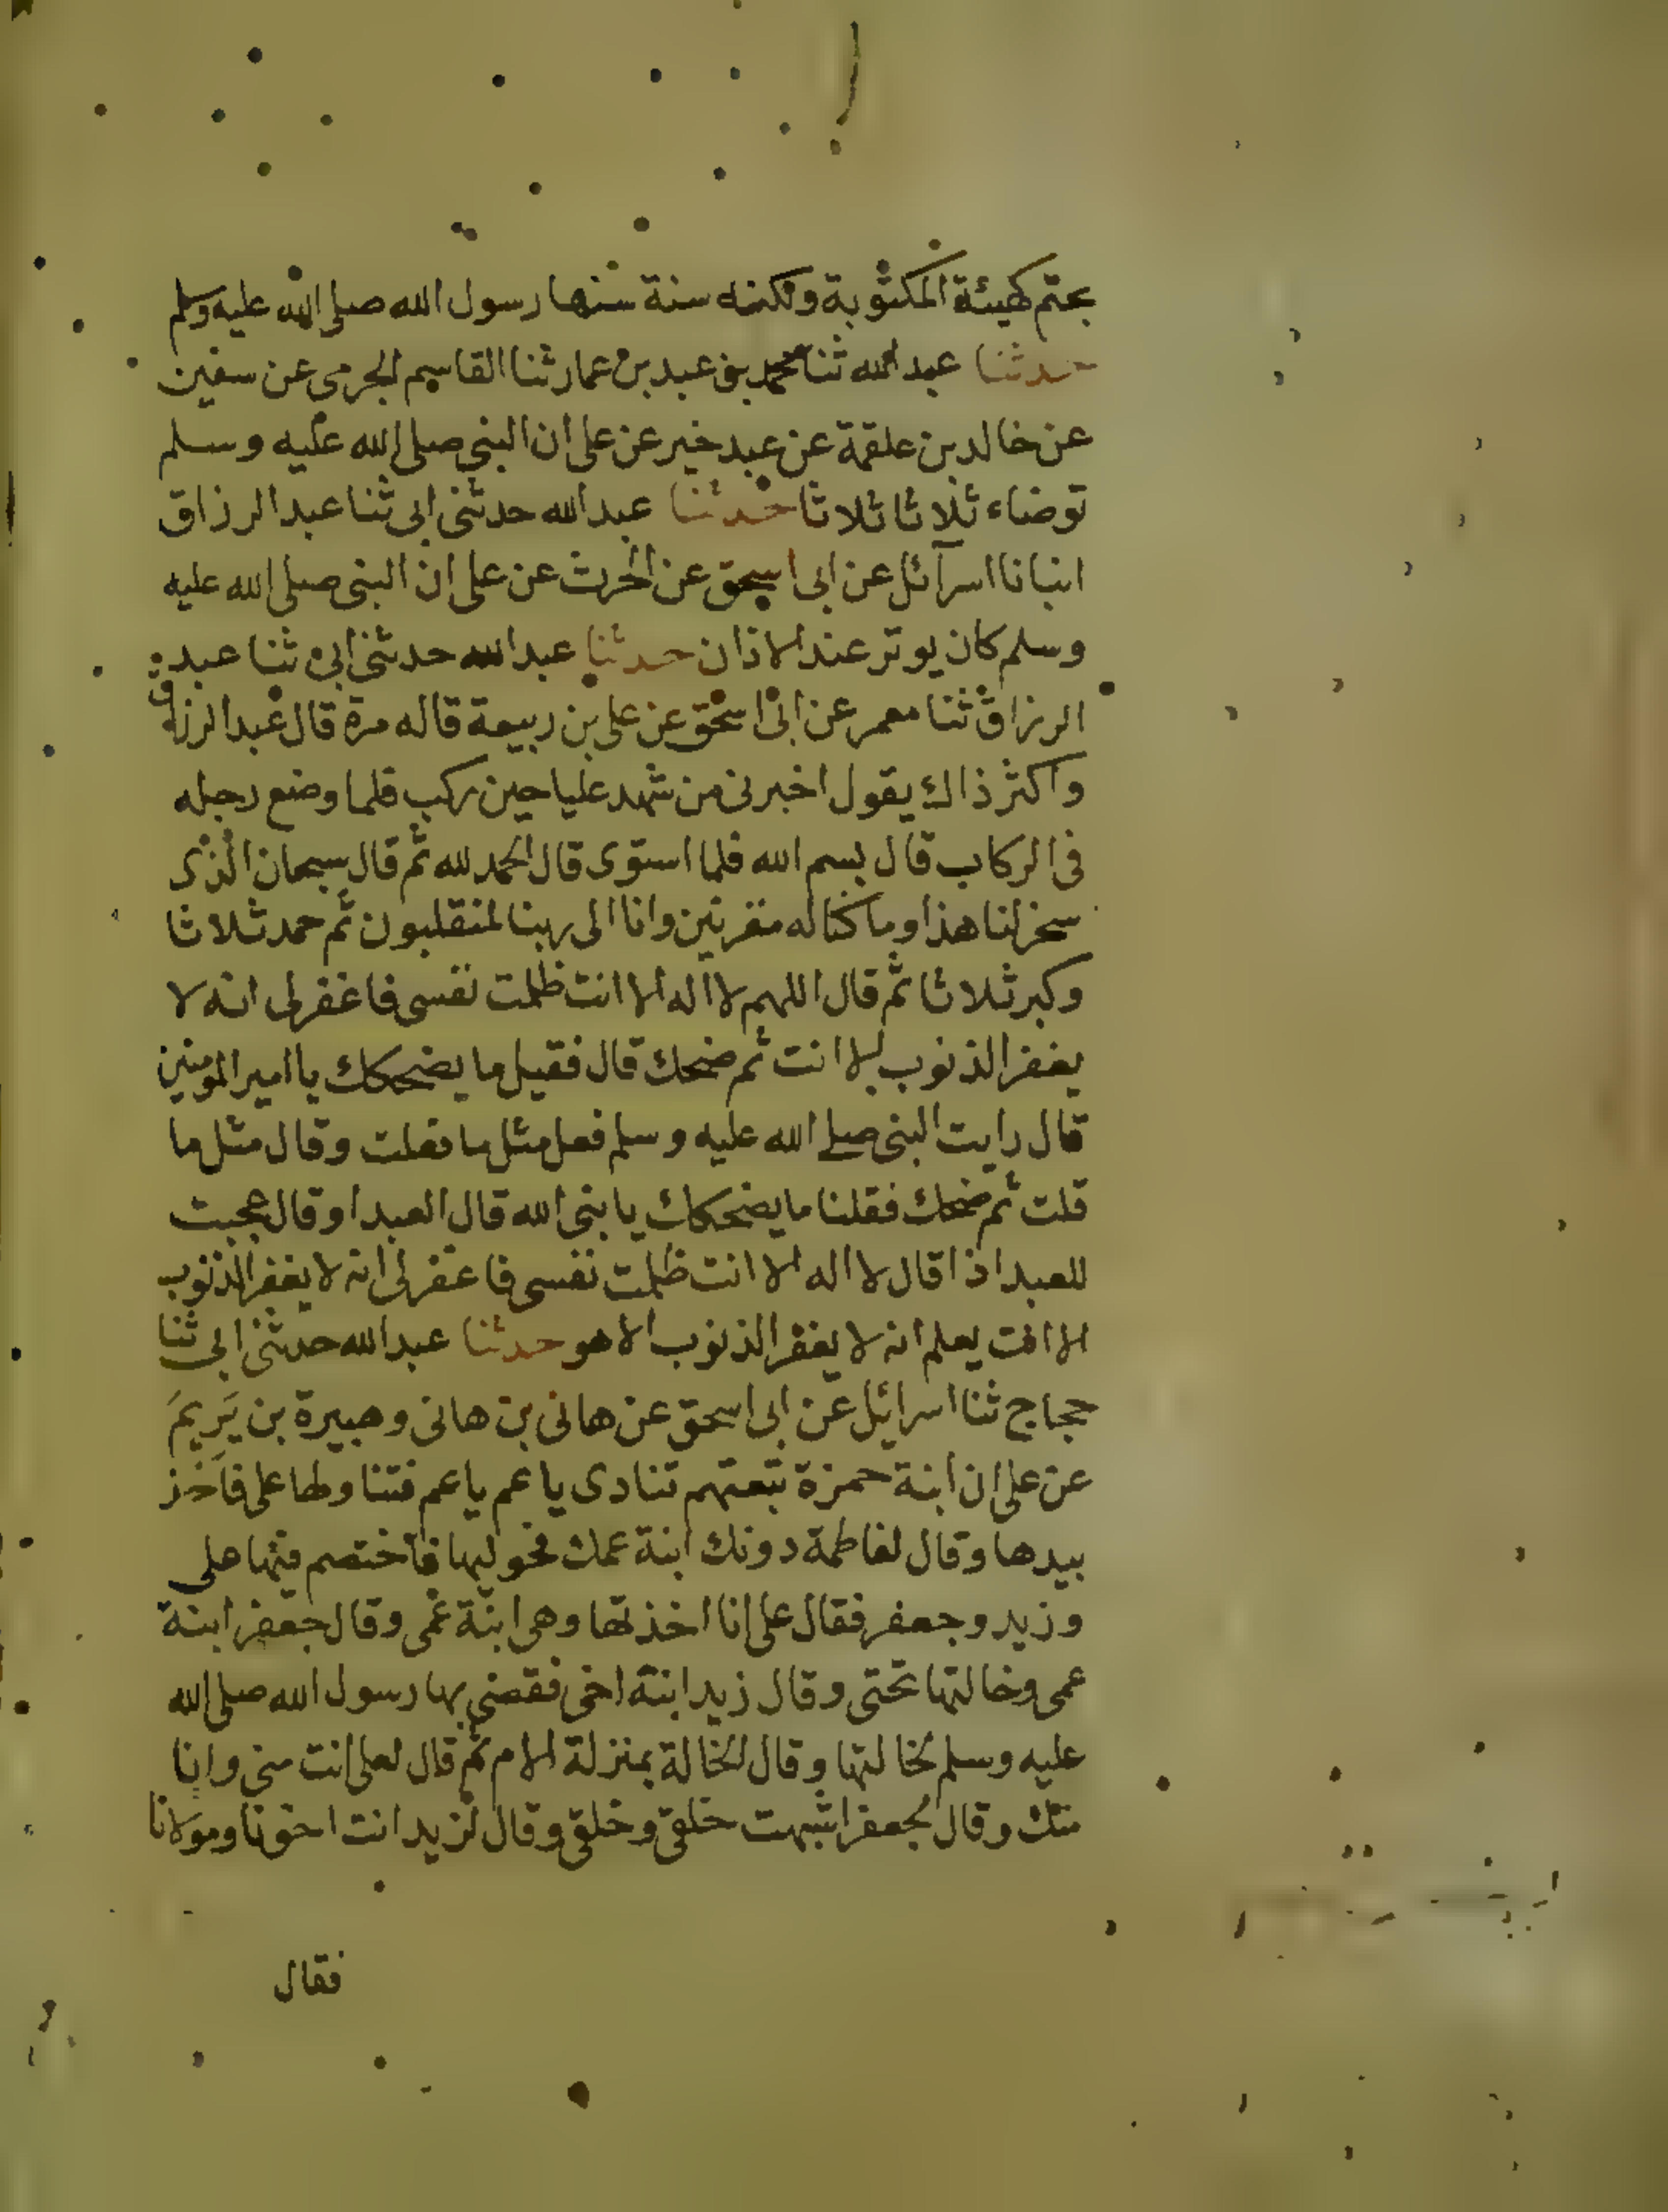 بحتم كهيئة المكتوبة ولكنه سنة سنها رسول الله صلى الله عليه وسلم
حدثنا عبد الله ثنا محمد بن عبد بن عمار ثنا القاسم الجرمى عن سفين
عن خالد بن علقمة عن عبد خير عن على ان النبى صلى الله عليه وسلم
توضاء ثلاثا ثلاثا حدثنا عبد الله حدثنى ابى ثنا عبد الرزاق
انبانا اسرآئل عن ابى اسحق عن الحرث عن على ان النبى صلى الله عليه
وسلم كان يوتر عند الاذان حدثنا عبد الله حدثنى ابى ثنا عبد
الرزاق ثنا معمر عن ابى اسحق عن على بن ربيعة قاله مرة قال عبد الرزاق
واكثر ذاك يقول اخبرنى من شهد عليا حين ركب فلما وضع رجله
فى الركاب قال بسم الله فلما استوى قال الحمد لله ثم قال سبحان الذى
سخر لنا هذا وما كنا له مقرنين وانا الى ربنا لمنقلبون ثم حمد ثلاثا
وكبر ثلاثا ثم قال اللهم لا اله الا انت ظلمت نفسى فاغفر لى انه لا
يغفر الذنوب الا انت ثم ضحك قال فقيل ما يضحكك يا امير المومنين
قال رايت النبى صلى الله عليه وسلم فعل مثل ما فعلت وقال مثل ما
قلت ثم ضحك فقلنا ما يضحكك يا نبى الله قال العبد او قال عجبت
للعبد اذا قال لا اله الا انت ظلمت نفسى فاغفر لى انه لا يغفر الذنوب
الا انت يعلم انه لا يغفر الذنوب الا هو حدثنا عبد الله حدثنى ابى ثنا
حجاج ثنا اسرائل عن ابى اسحق عن هانى بن هانى وهبيرة بن يَرِيمَ
عن على ان ابنة حمزة تبعتهم تنادى يا عم يا عم فتناولها على فاخذ
بيدها وقال لفاطمة دونك ابنة عمك فحوليها فاختصم فيها على
وزيد وجعفر فقال على انا اخذتها وهى ابنة عمى وقال جعفر ابنة
عمى وخالتها تحتى وقال زيد ابنة اخى فقضى بها رسول الله صلى الله
عليه وسلم لخالتها وقال الخالة بمنزلة الام ثم قال لعلى انت منى وانا
منك وقال لجعفر اشبهت خلقى وخلقى وقال لزيد انت اخونا ومولانا
فقال